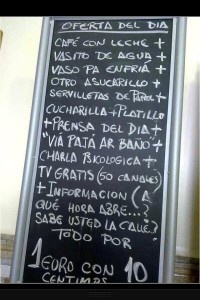 OFERTA DEL DIA
CAFÉ CON LECHE +
VASITO DE AGUA +
VASO PA ENFRIÁ +
OTRO ASUCARILLO +
SERVILLETAS DE PAPEL +
CUCHARILLA + PLATILLO
+ PRENSA DEL DIA +
"VIÁ PATÁ AR BAÑO" +
CHARLA PSICOLOGICA +
TV GRATIS (50 CANALES)
+ INFORMACION (A
QUÉ HORA ABRE...?
SABE USTED LA CALLE?)
TODO POR
1 EURO CON 10
CENTIMOS